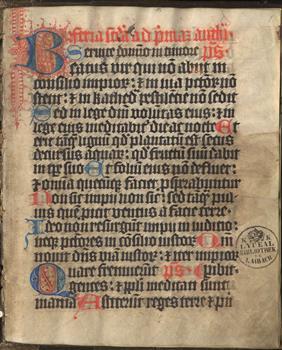 Feria scda ad pmas anthi
Seruite domino in timore ps
Beatus vir qui nō abijt in
consilio impior: ⁊ in uia pctor nō
stetit: ⁊ in kathed pestilēcie nō sedit
Sed in lege dm̄ volūtas eius: ⁊ in
lege eius meditabit die ac nocte Et
erit tāq lignū qd plantatū est secus
decursus aquar: qd fructū suū dabit
in tpr suo Et foliū eius nō defluet:
⁊ omnia quecūq faciet psperabūntur
Non sic impii non sic: sed tāq pul
uis quē picit ventus a facie terre
Ideo non resurgūt impii in iudicio:
neq pctores in cōsilio iustor Qm
nouit dn̄s viā iustor: ⁊ iter impior
Quare fremuerūt ps pibit
gentes: ⁊ ppli meditati sunt
inania Astiterūt reges terre ⁊ pn
K K
LYCEAL
BIBLIOTHEK
LAIBACH